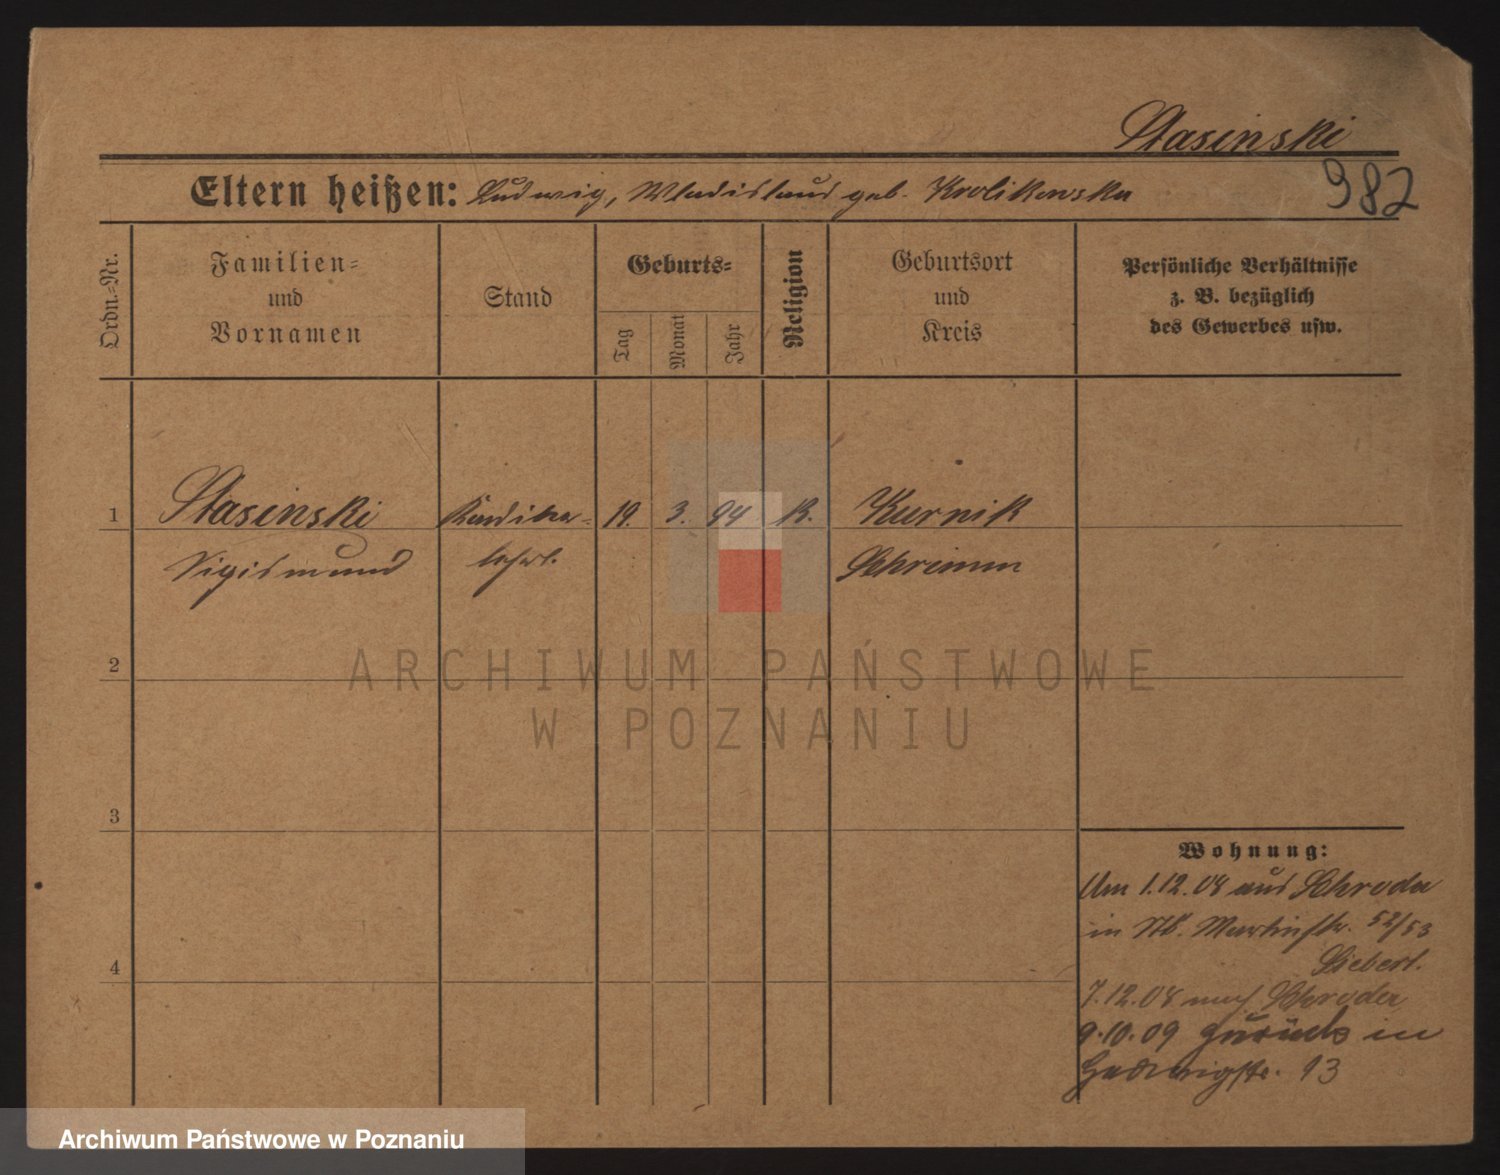 Stasinski
Eltern heißen: Ludwig, Wladislaus geb. Krolikowska
982
Ordn.-Nr.
Familien-
und
Vornamen
Stand
Geburts-
Tag
Monat
Jahr
Religion
Geburtsort
und
Kreis
Persönliche Verhältnisse
z. B. bezüglich
des Gewerbes usw.
1 Stasinski 19. 3. 94 K. Kurnik
Sigismund lehrl. Schrimm
2
3
4
Wohnung:
Um 1.12.08 aus Schroda
in St. Martinstr. 52/53
Siebert.
7.12.08 nach Schroda
9.10.09 zurück in
Hedwigstr. 13
ARCHIWUM PAŃSTWOWE
W POZNANIU
Archiwum Państwowe w Poznaniu